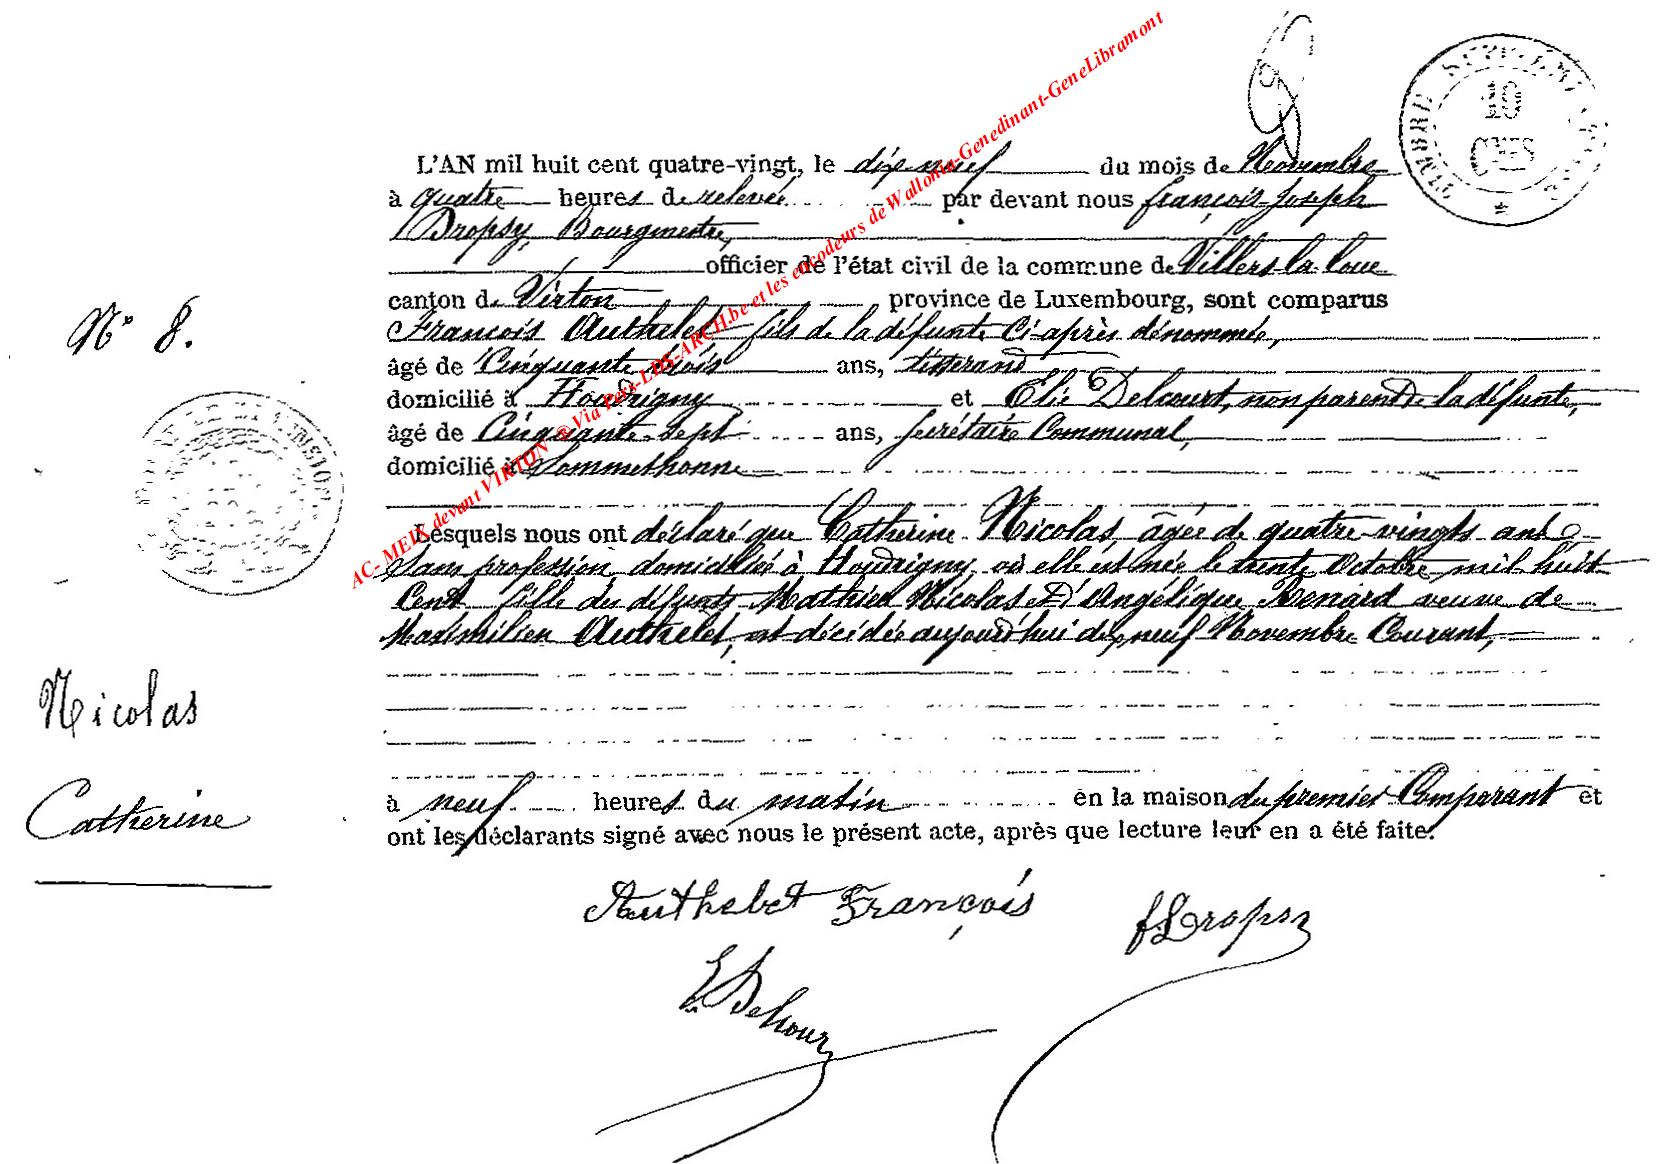 TIMBRE SUPPLÉMENT
10
CMES
L'AN mil huit cent quatre-vingt, le dix neuf du mois de Novembre
à quatre heures de relevée par devant nous françois-Joseph
Dropsy, Bourgmestre,
officier de l'état civil de la commune de Villers-la-loue
canton de Virton province de Luxembourg, sont comparus
N° 8.
François Authelet fils de la défunte Ci-après dénommée,
âgé de Cinquante trois ans, tisserand
domicilié à Houdrigny et Elie Delcourt, non parent de la défunte,
âgé de Cinquante-sept ans, secrétaire Communal,
domicilié à Sommethonne
Lesquels nous ont déclaré que Catherine Nicolas, âgée de quatre-vingts ans
Sans profession, domiciliée à Houdrigny, où elle est née le trente Octobre mil huit
Cent, fille des défunts Mathieu Nicolas Et d'Angélique Renard veuve de
Maximilien Authelet, est décédée aujourd'hui dix neuf Novembre Courant,
Nicolas
Catherine
à neuf heures du matin en la maison du premier Comparant et
ont les déclarants signé avec nous le présent acte, après que lecture leur en a été faite.
Authelet François
fDropsy
E. Delcour
AC- MEIX devant VIRTON @ Via Pers-LDS-ARCH.be et les encodeurs de Wallonia-Genedinant-GeneLibramont